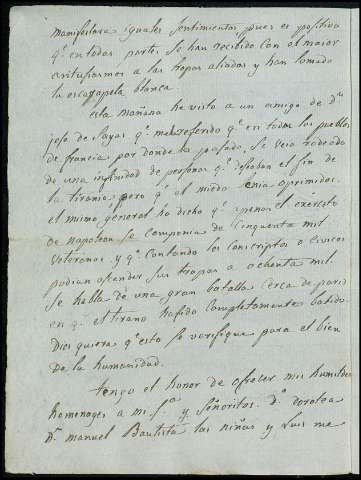 manifestara iguales sentimientos, pues es positivo
qe. en todas partes se han recibido con el maior
entusiasmo a las tropas aliadas y han tomado
la escarapela blanca.
esta mañana he visto a un amigo de Dn
josé de Sayas qe. me referido qe. en todos los pueblos
de francia por donde ha pasado, se veia rodeado
de una infinidad de personas qe. deseaban el fin de
la tirania pero qe. el miedo tenia oprimidos.
el mismo general ha dicho qe. apenas el exersito
de Napoleon se componia de cinquenta mil
veteranos y qe. contando los conscriptos o civicos
podian asender sus tropas a ochenta mil.
se habla de una gran batalla cerca de paris
en qe. el tirano ha sido completamente batido.
Dios quiera qe. esto se varifique para el bien
de la humanidad.
tengo el honor de ofrecer mis humildes
homenages a mi Sa. y Señoritas Da. dorotea
Dn. manuel Bautista las niñas y Luis me